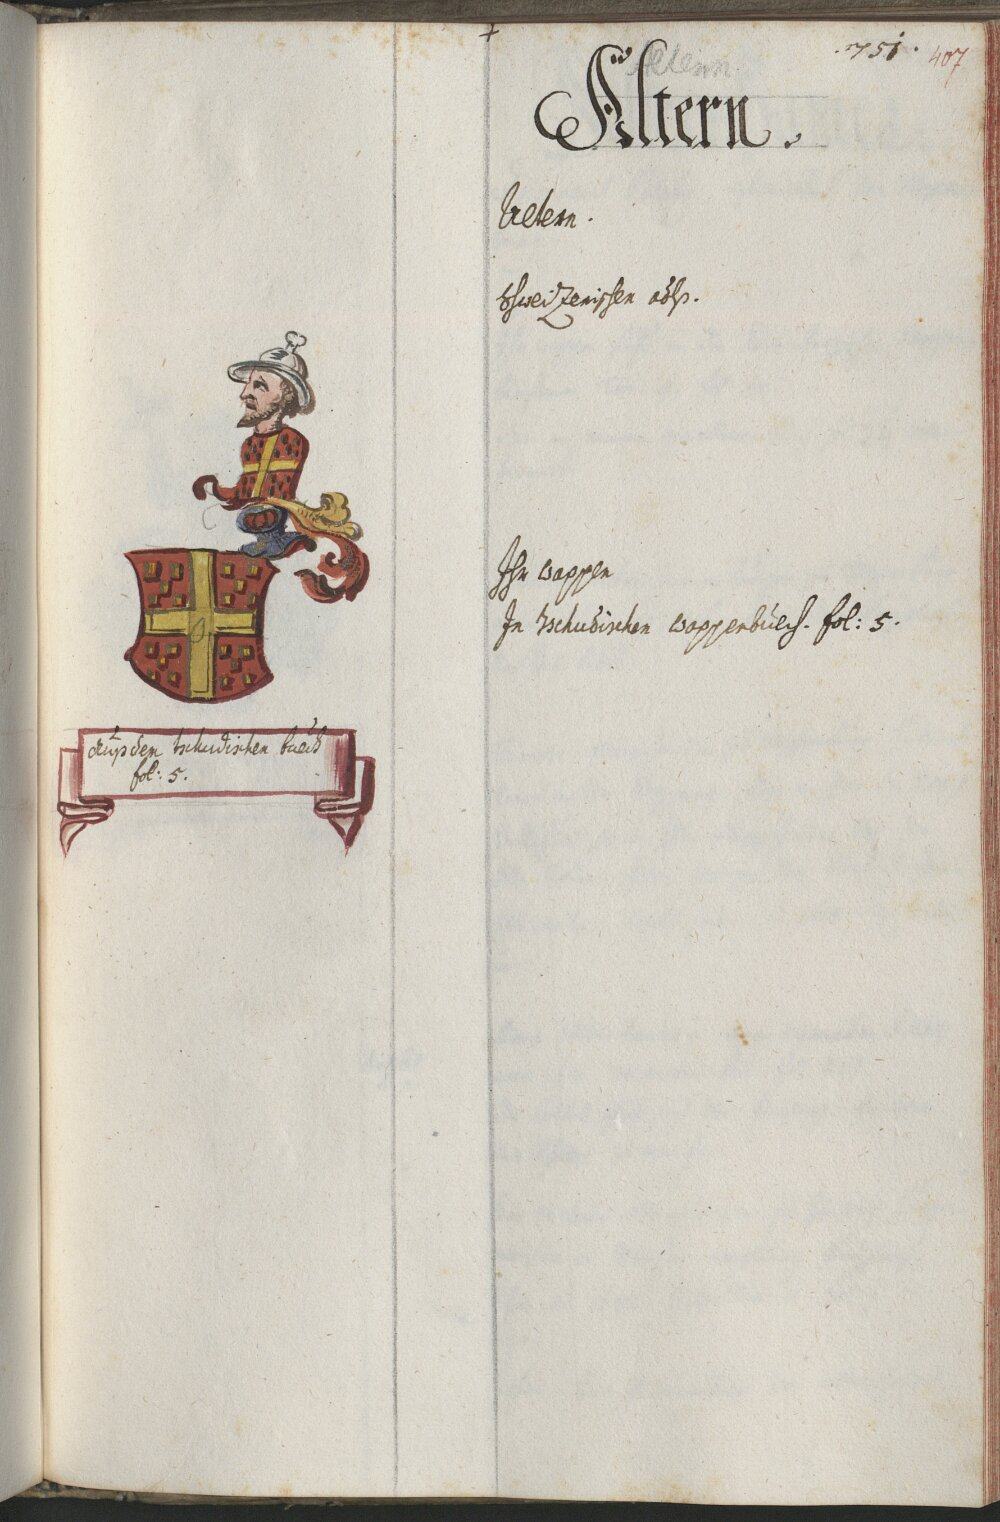 751. 407
Altern
Ältern.
Altern.
Schweizerischen adls.
Ihr wappen
In Tschudischen wappenbuech. fol: 5.
Auß dem tschudischen buech
fol: 5.